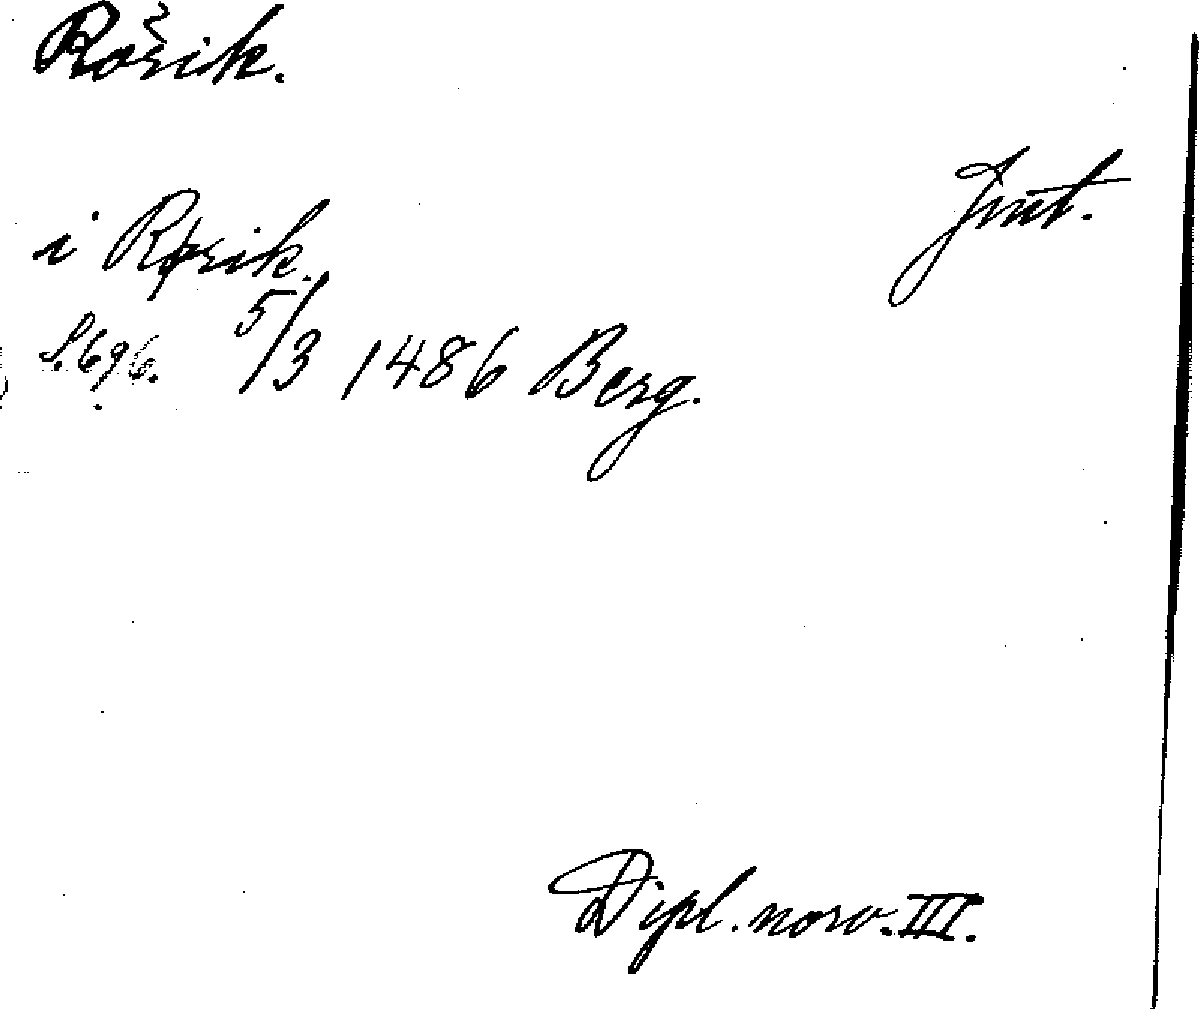 Rörik.
Jmt.
i Rørik.
S. 696. 5/3 1486 Berg.
Dipl. norv. III.